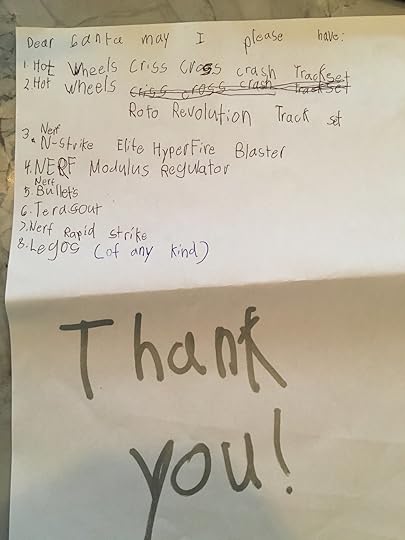 Dear Santa may I please have:
1. Hot Wheels Criss Cross crash Trackset
2. Hot wheels criss cross crash trackset
Roto Revolution Track set
3. Nerf N-Strike Elite HyperFire Blaster
4. NERF Modulus Regulator
5. Nerf Bullets
6. Terascout
7. Nerf Rapid Strike
8. Legos (of any kind)
Thank
you!